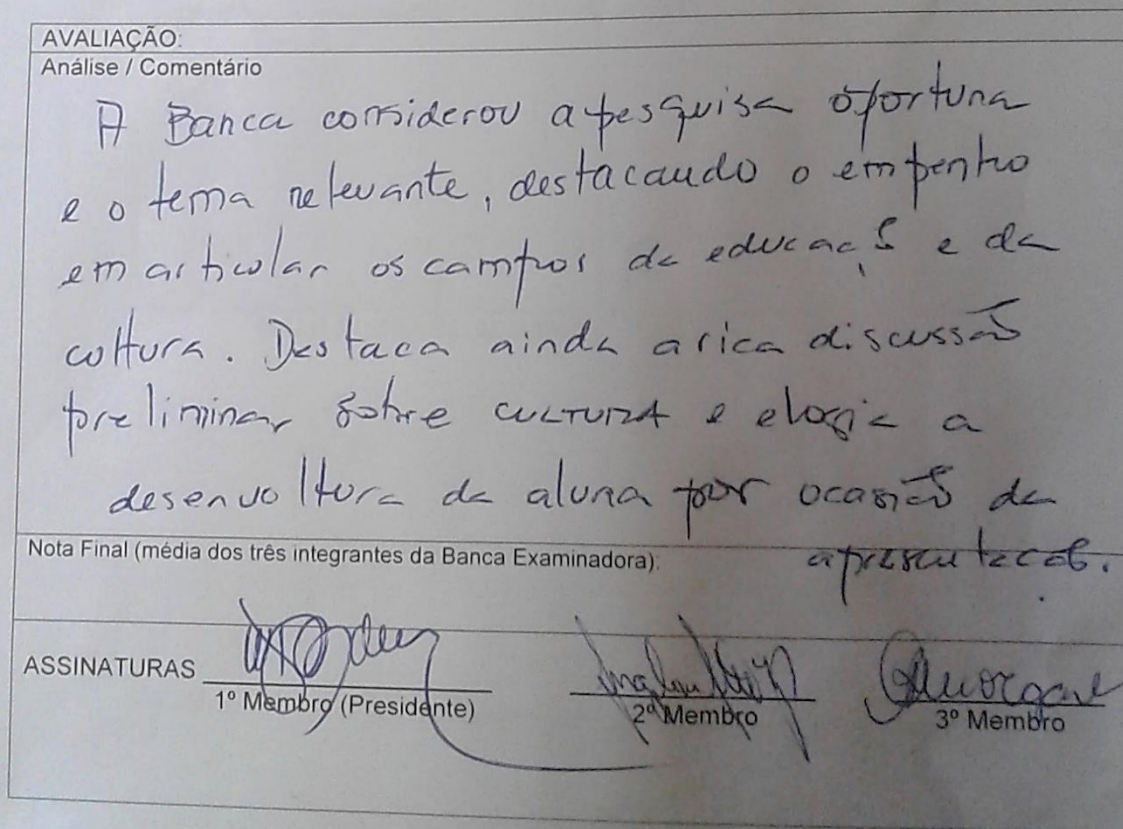 AVALIAÇÃO:
Análise / Comentário
A Banca considerou a pesquisa oportuna
e o tema relevante, destacando o empenho
em articular os campos da educação e da
cultura. Destaca ainda a rica discussão
preliminar sobre CULTURA e elogia a
desenvoltura da aluna por ocasião da
apresentação.
Nota Final (média dos três integrantes da Banca Examinadora):
ASSINATURAS
1º Membro (Presidente)
2º Membro
3º Membro